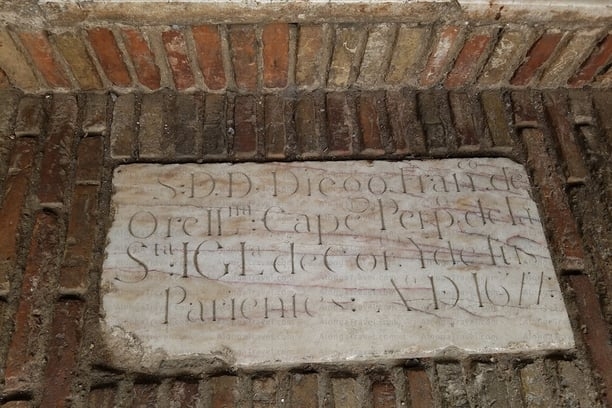 S: D. D. Diego Fran.co de
Orell.na: Cape.n Perp.o de la
S.ta IGL.a de Cor. Y de sus
Parientes: A.o D. 1677